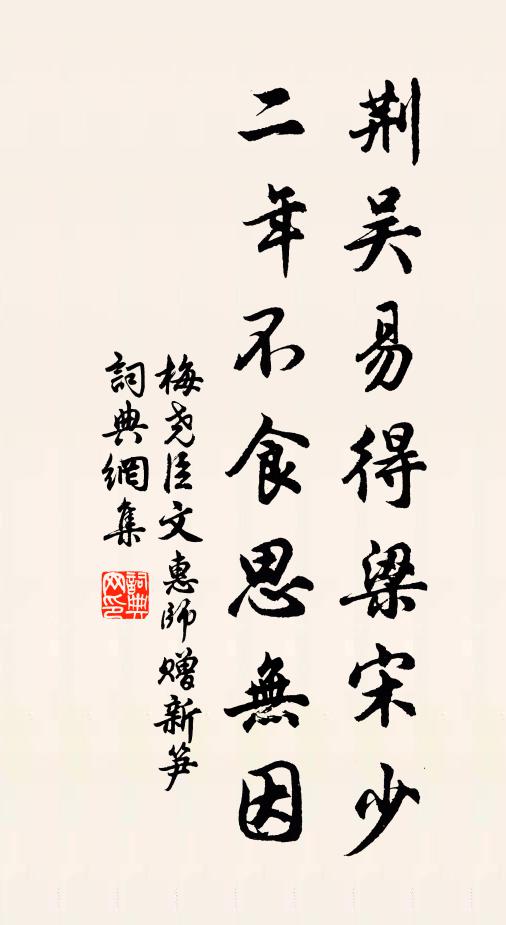 荆吴易得梁宋少
二年不食思無因
梅尧臣文惠師贈新笋
詞典網集
詞典网印